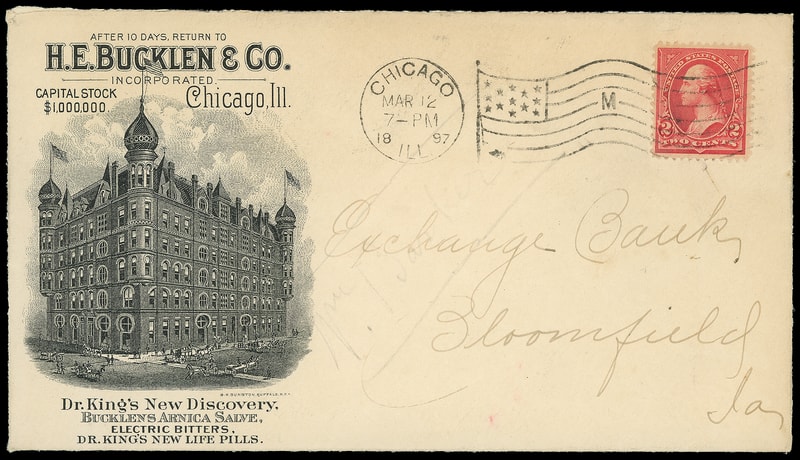 AFTER 10 DAYS, RETURN TO
H.E. BUCKLEN & CO.
INCORPORATED.
CAPITAL STOCK
$1,000,000.
Chicago, Ill.
Dr. King's New Discovery,
BUCKLEN'S ARNICA SALVE,
ELECTRIC BITTERS,
DR. KING'S NEW LIFE PILLS.
CHICAGO
MAR 12
7-PM
18 97
ILL.
M
UNITED STATES POSTAGE
2 2
TWO CENTS
Exchange Bank
Bloomfield
Ia